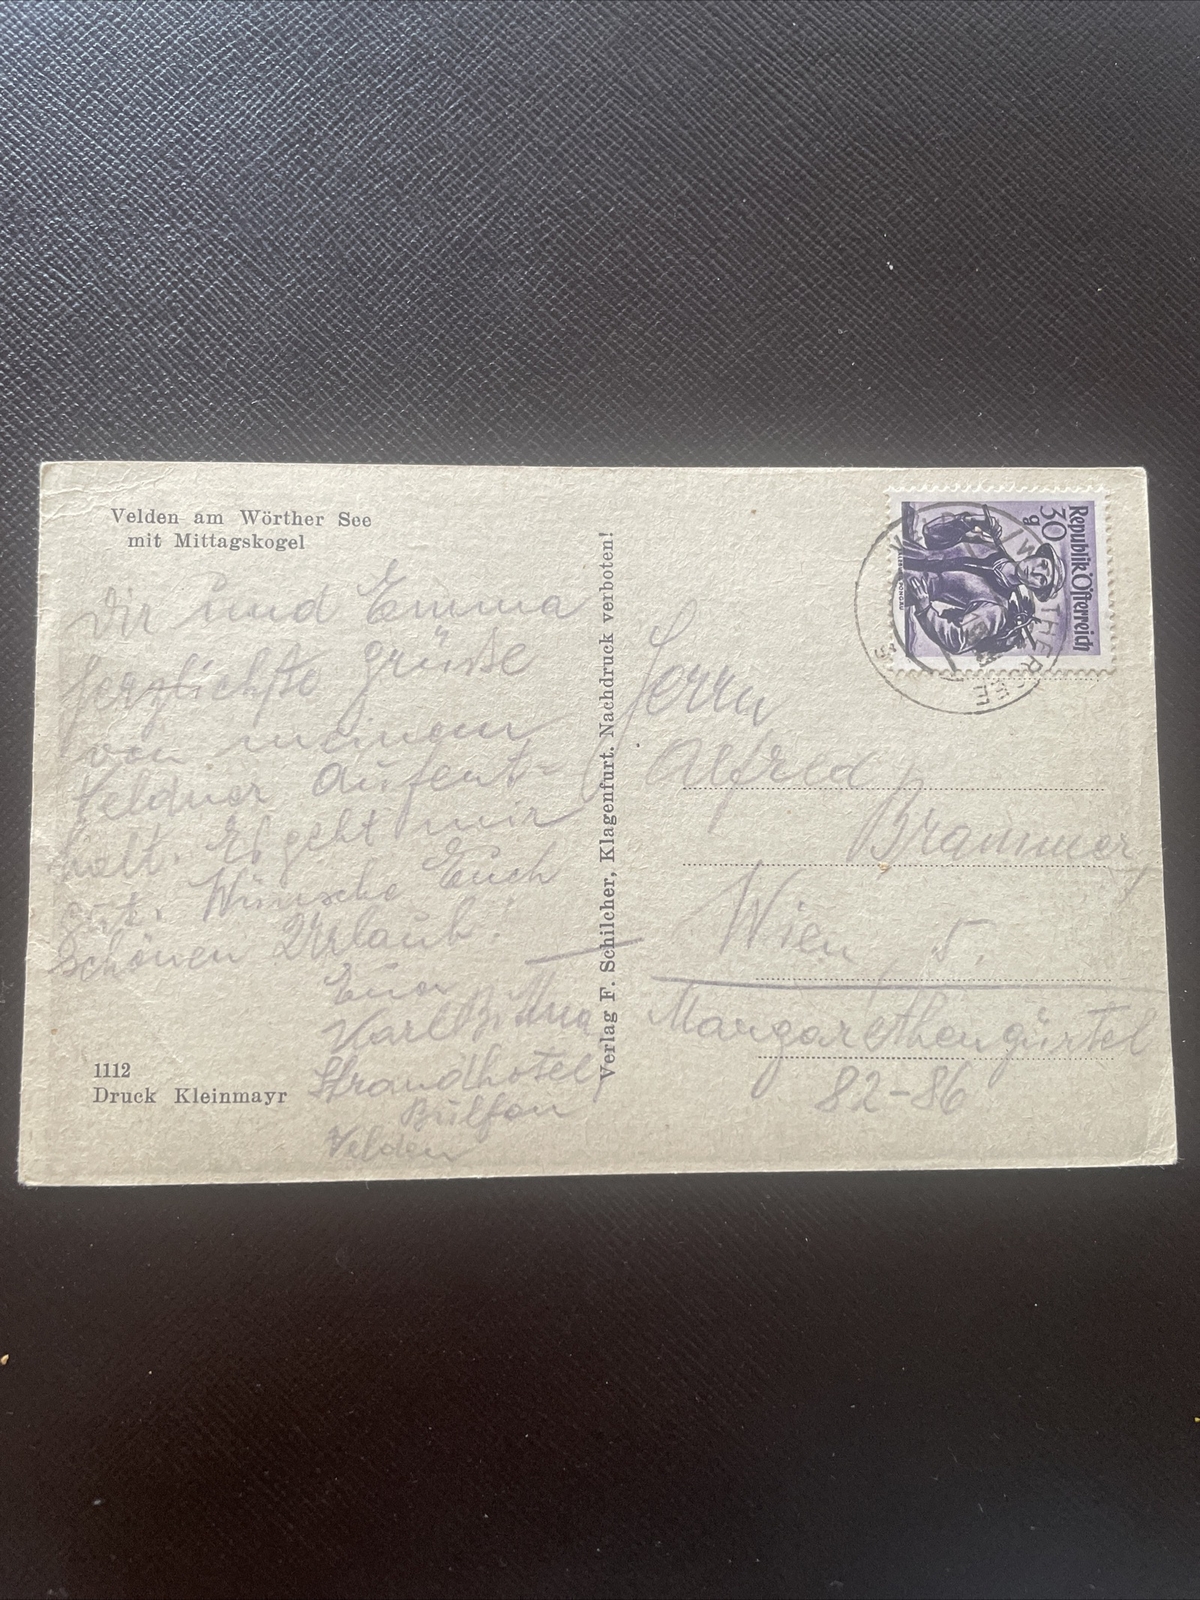 Velden am Wörther See
mit Mittagskogel
Dir und Emma
herzlichste Grüsse
von meinem
Veldner Aufent-
halt. Es geht mir
gut. Wünsche Euch
schönen Urlaub!
Euer
Karl
Strandhotel
Bulfon
Velden
1112
Druck Kleinmayr
Verlag F. Schilcher, Klagenfurt. Nachdruck verboten!
Republik Österreich
30
g
WÖRTHERSEE
Herrn
Alfred
Brammer
Wien 5.
Margarethengürtel
82-86